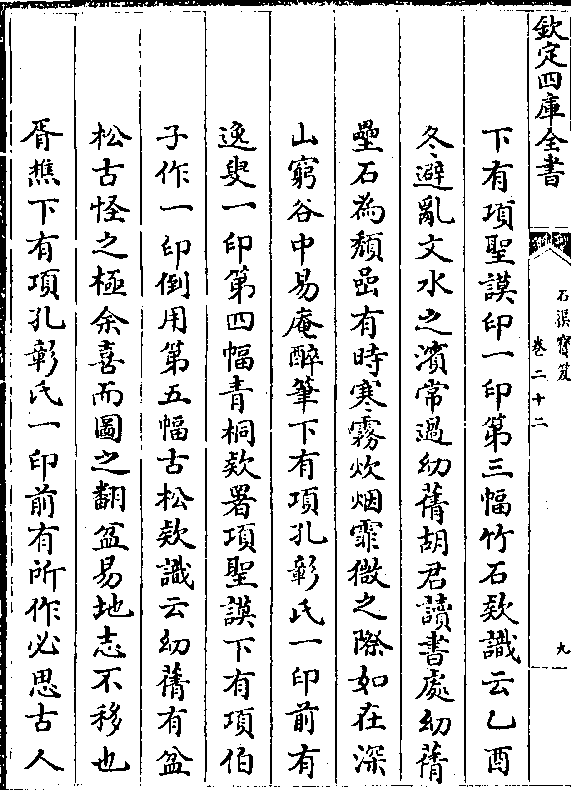 欽定四庫全書
石渠寳笈
卷二十二
九
下有項聖謨印一印第三幅竹石欵識云乙酉
冬避亂文水之濱常過幼蒨胡君讀書處幼蒨
壘石為頽嵒有時寒霧炊烟霏微之際如在深
山窮谷中易庵醉筆下有項孔彰氏一印前有
逸叟一印第四幅青桐欵署項聖謨下有項伯
子作一印倒用第五幅古松欵識云幼蒨有盆
松古怪之極余喜而圖之翻盆易地志不移也
胥樵下有項孔彰氏一印前有所作必思古人